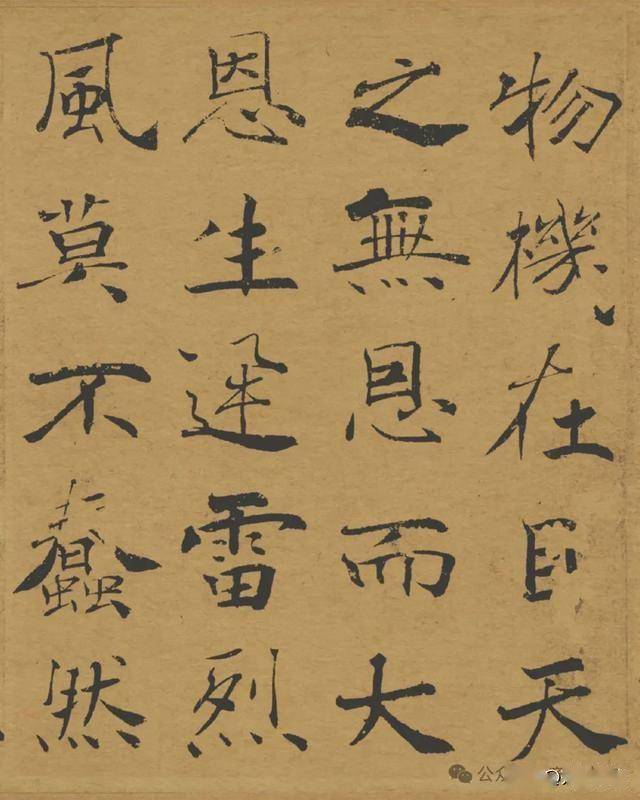 物機在目天
之無恩而大
恩生迅雷烈
風莫不蠢然
公众